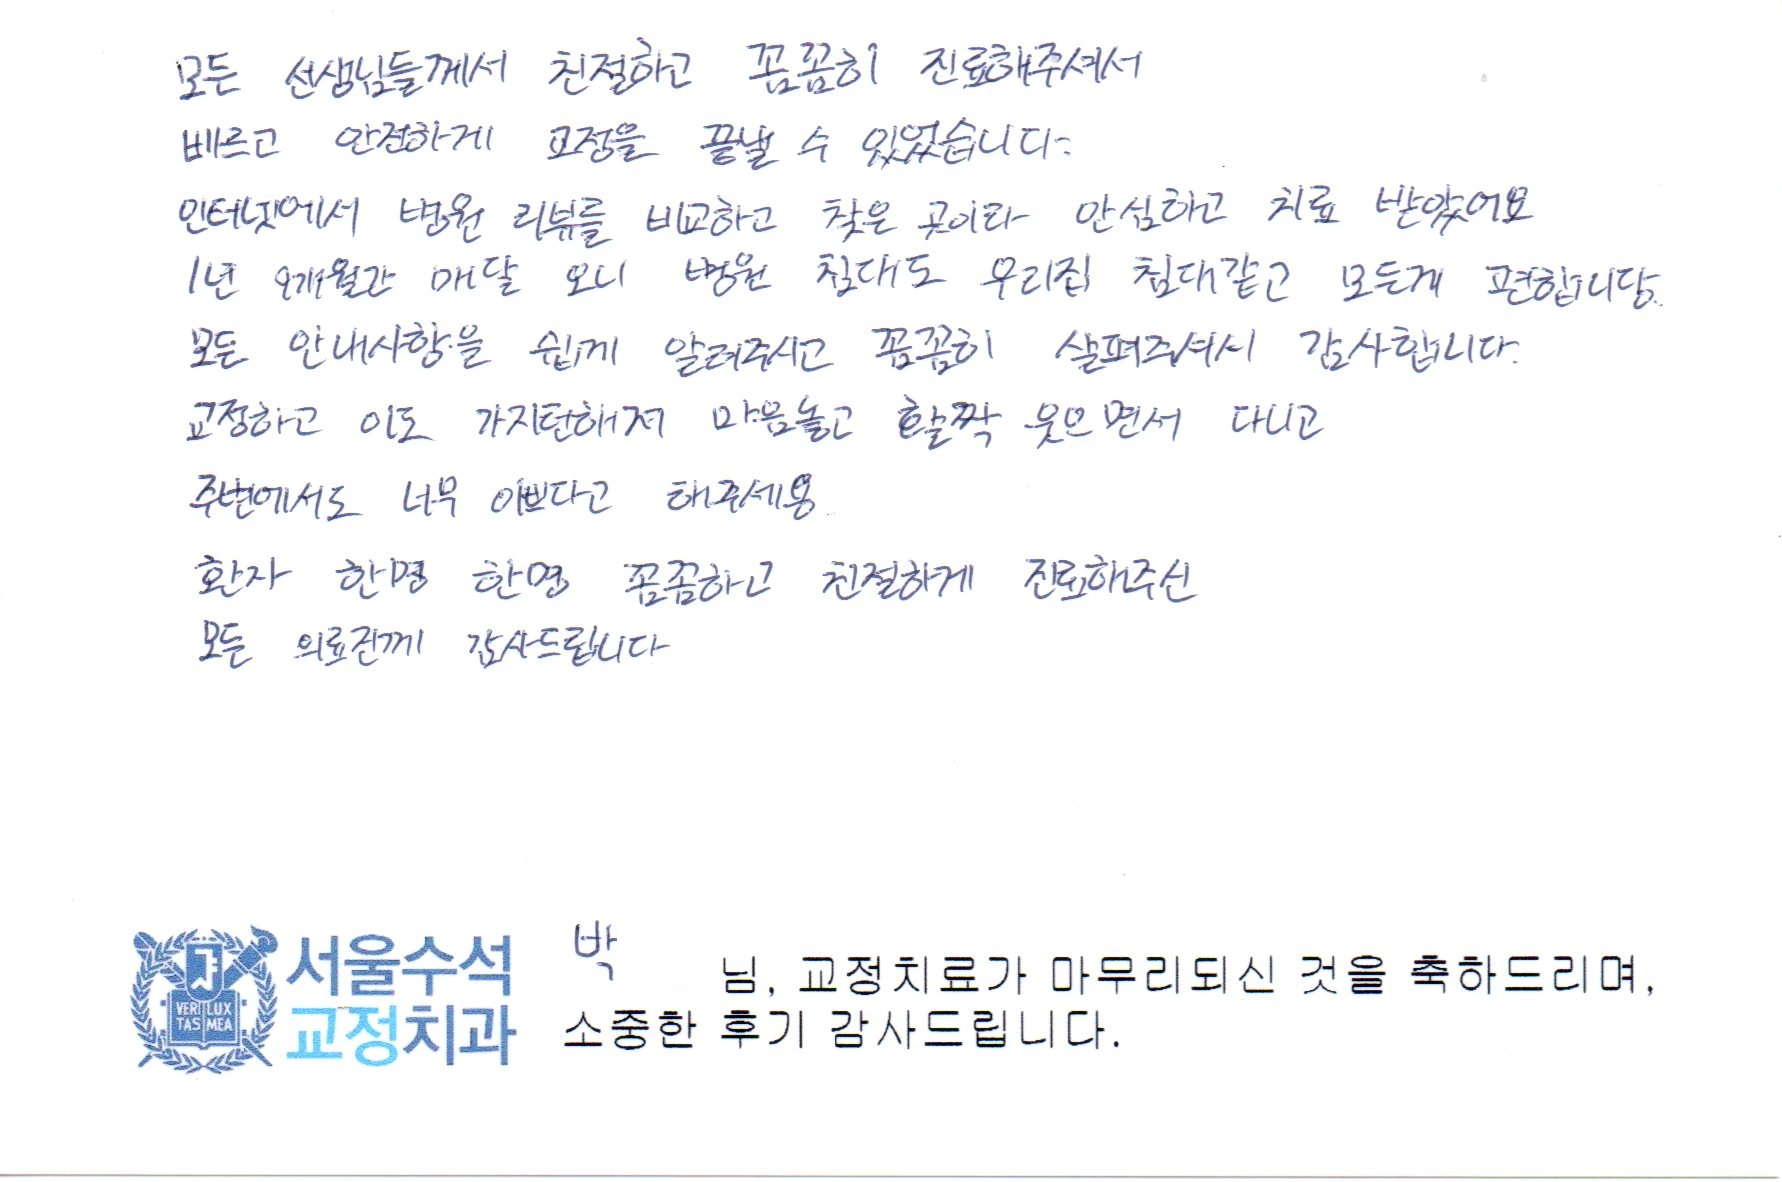 모든 선생님들께서 친절하고 꼼꼼히 진료해주셔서
빠르고 안전하게 교정을 끝낼 수 있었습니다.
인터넷에서 병원 리뷰를 비교하고 찾은 곳이라 안심하고 치료 받았어요
1년 9개월간 매달 오니 병원 침대도 우리집 침대같고 모든게 편합니당.
모든 안내사항을 쉽게 알려주시고 꼼꼼히 살펴주셔서 감사합니다.
교정하고 이도 가지런해져 마음놓고 활짝 웃으면서 다니고
주변에서도 너무 이쁘다고 해주세용
환자 한명 한명 꼼꼼하고 친절하게 진료해주신
모든 의료진께 감사드립니다
서울수석
교정치과
VERI LUX
TAS MEA
박 님, 교정치료가 마무리되신 것을 축하드리며,
소중한 후기 감사드립니다.